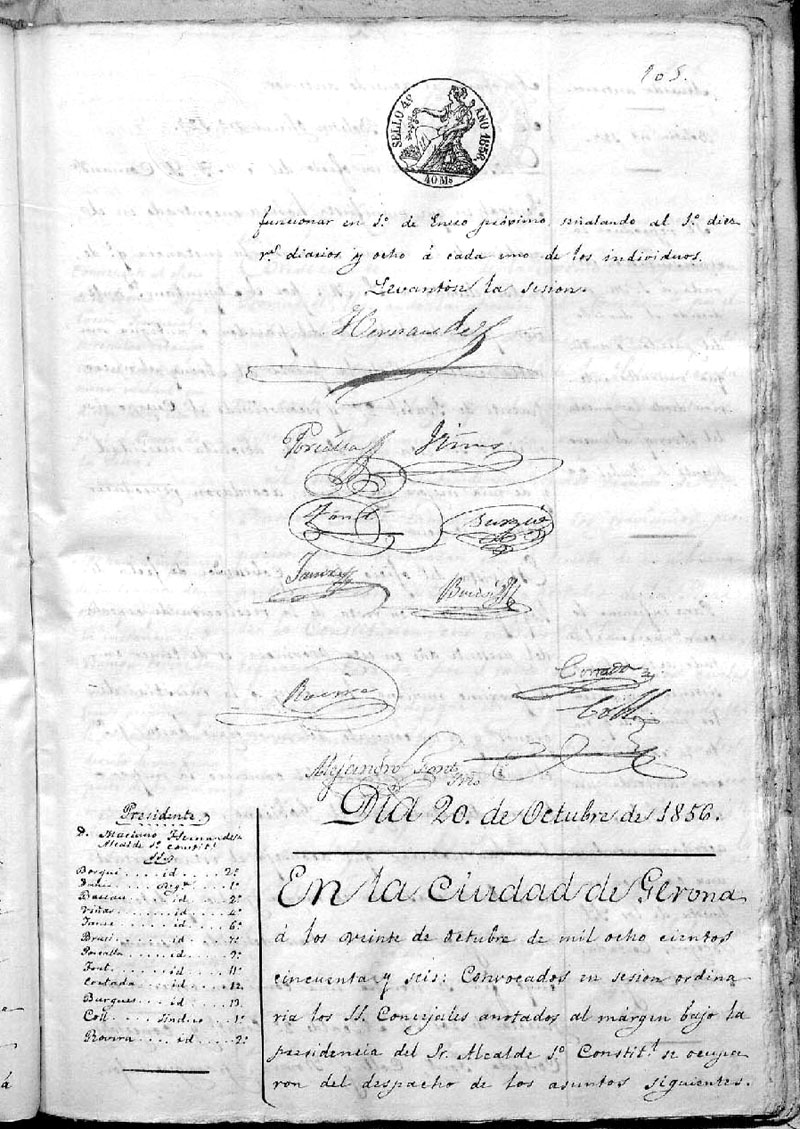 105.
SELLO 4º AÑO 1856.
40 Ms.
funcionar en 1º de Enero próximo, señalando al 1º diez
rs. diarios y ocho á cada uno de los individuos.
Levantóse la sesion.
Hernandez
Porcalla Viñas
Font Burgués
Jaume
Rovira Corrado
Coll
Alejandro Font
Srio
Dia 20. de Octubre de 1856.
Presidente
D. Mariano Hernandez
Alcalde 1º Constitl.
SS.
Bosqui id 2º
Regr. 1º
Bassau id 2º
Viñas id 4º
Jaume id 6º
Bruci id 7º
Porcalla id 9º
Font id 11º
Cortada id 12.
Burgues id 13.
Coll Sindico 1º
Rovira id 2º
En la Ciudad de Gerona
á los veinte de Octubre de mil ocho cientos
cincuenta y seis: Convocados en sesion ordina
ria los SS. Concejales anotados al márgen bajo la
presidencia del Sr. Alcalde 1º Constitl. se ocupa
ron del despacho de los asuntos siguientes.